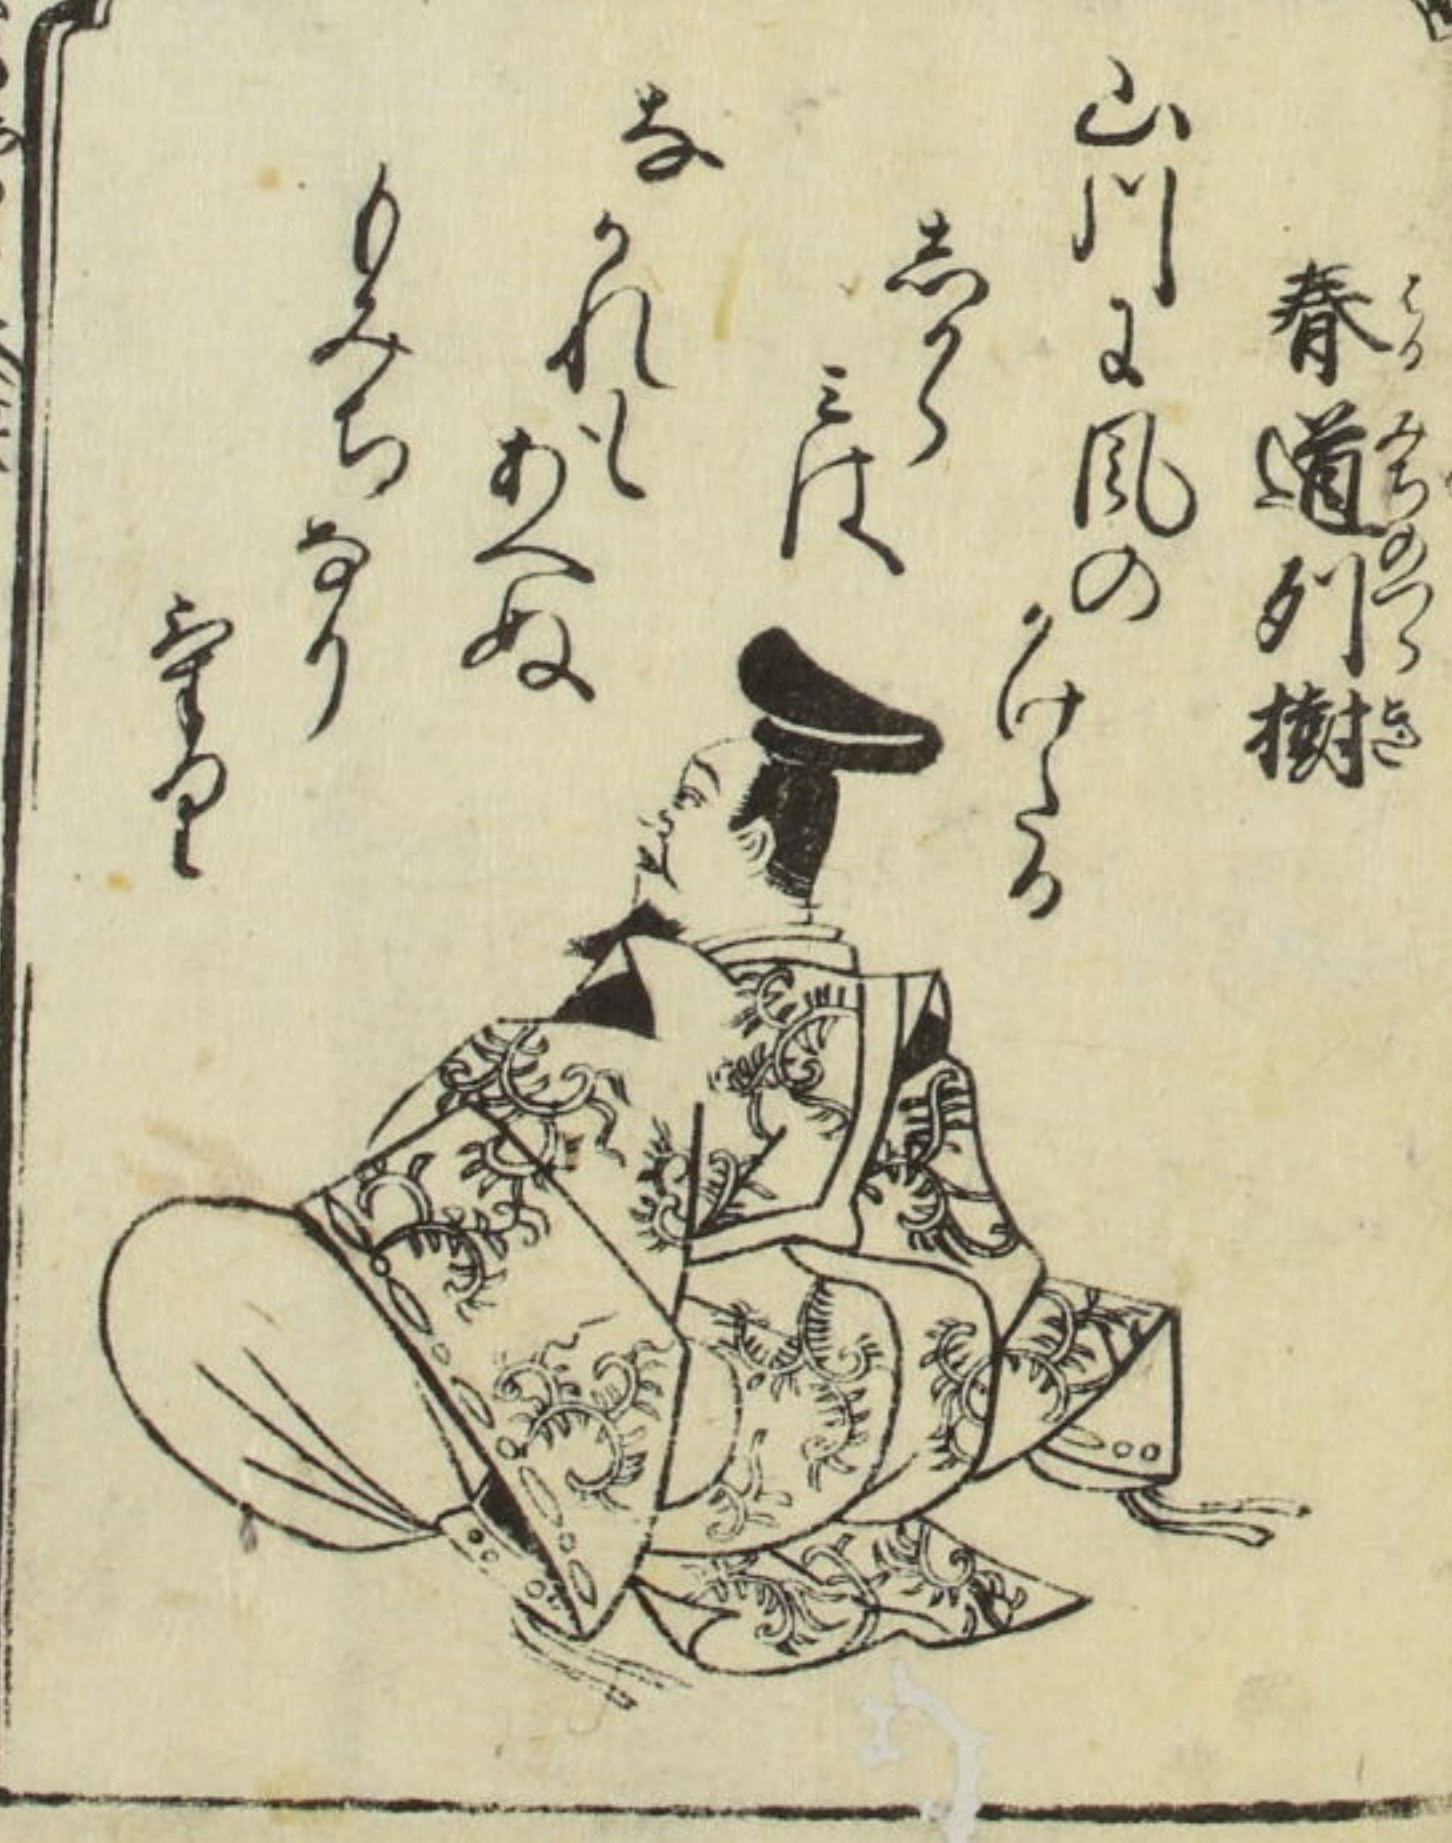 はるみちのつらき
春道列樹
山川に風の
かけたる
しから
みは
な
かれも
あへぬ
もみち
なり
けり